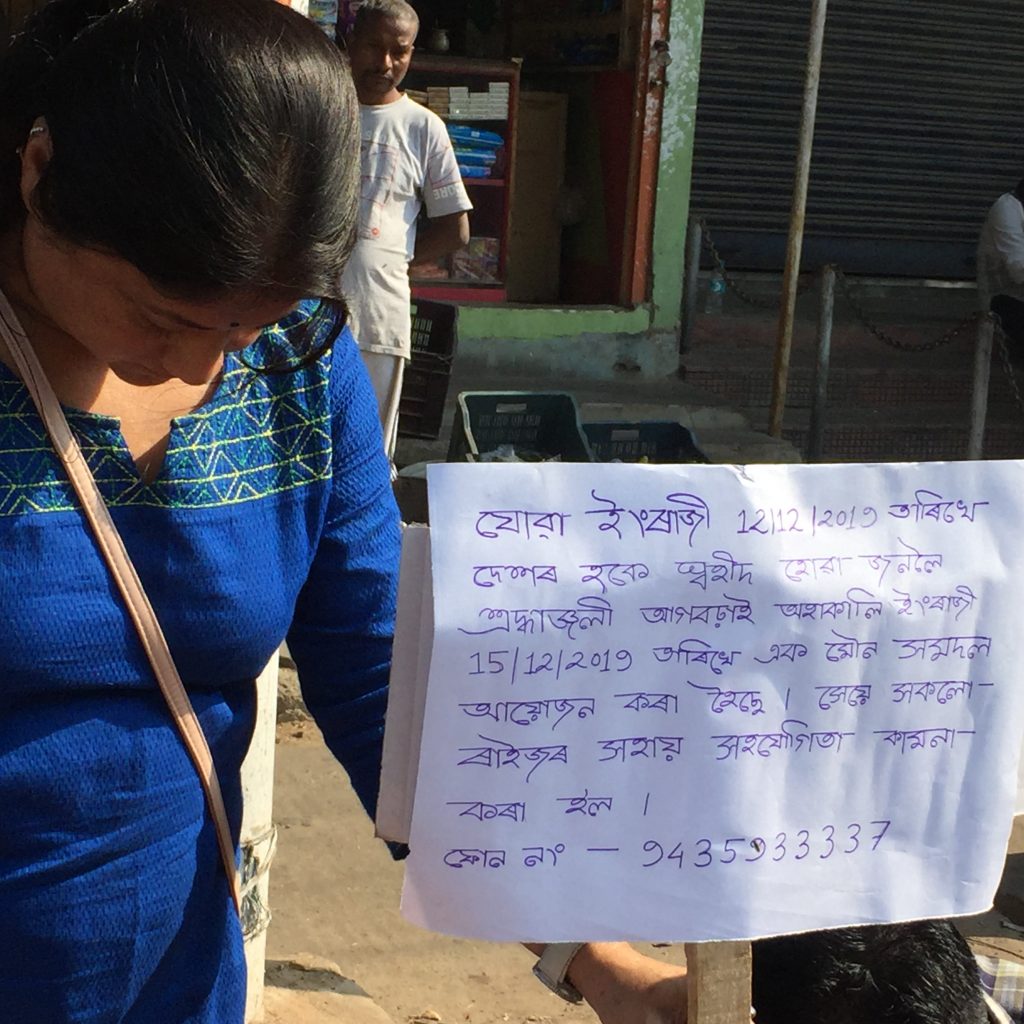 যোৱা ইংৰাজী 12/12/2019 তাৰিখে
দেশৰ হকে শ্বহীদ হোৱা জনলৈ
শ্রদ্ধাঞ্জলী আগবঢ়াই অহাকালি ইংৰাজী
15/12/2019 তাৰিখে এক মৌন সমদল
আয়োজন কৰা হৈছে। সেয়ে সকলো-
ৰাইজৰ সহায় সহযোগিতা কামনা-
কৰা হ'ল।
ফোন নাং – 9435933337